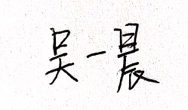 吴一晨